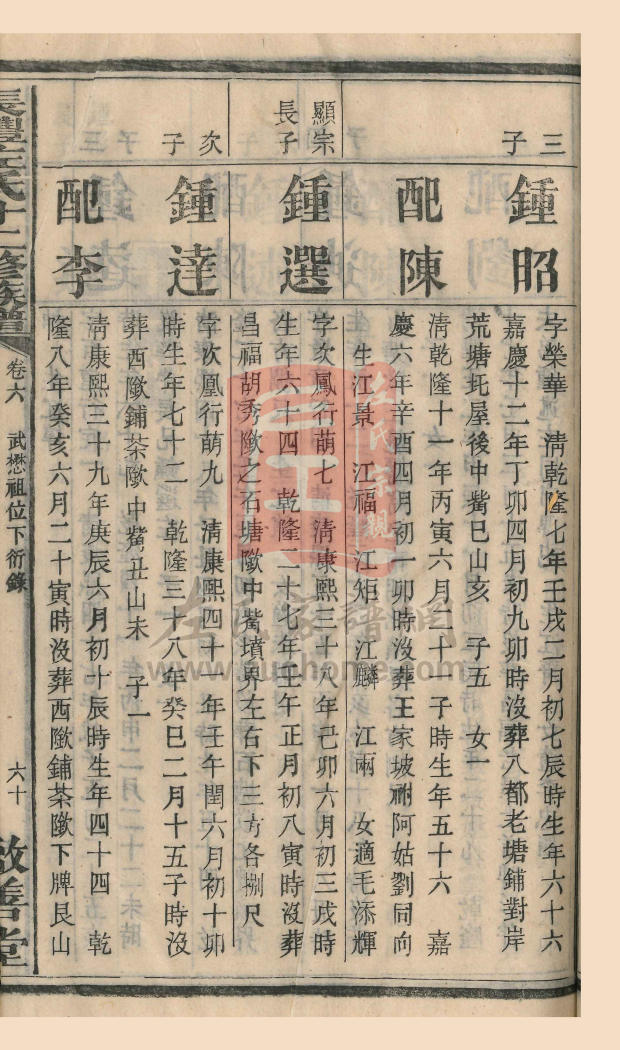 三子
鍾昭
字榮華　清乾隆七年壬戌二月初七辰時生年六十六
嘉慶十二年丁卯四月初九卯時沒葬八都老塘鋪對岸
荒塘圫屋後中觜巳山亥　子五　女一
配陳
清乾隆十一年丙寅六月二十一子時生年五十六　嘉
慶六年辛酉四月初一卯時沒葬王家坡祔阿姑劉同向
生江景　江福　江矩　江麟　江兩　女適毛添輝
顯宗長子
鍾選
字次鳳行萌七　清康熙三十八年己卯六月初三戌時
生年六十四　乾隆二十七年壬午正月初八寅時沒葬
昌福胡秀墩之石塘墩中觜墳界左右下三方各捌尺
次子
鍾達
字次凰行萌九　清康熙四十一年壬午閏六月初十卯
時生年七十二　乾隆三十八年癸巳二月十五子時沒
葬西墩鋪茶墩中觜丑山未　子一
配李
清康熙三十九年庚辰六月初十辰時生年四十四　乾
隆八年癸亥六月二十寅時沒葬西墩鋪茶墩下牌艮山
左氏十二修族譜
卷六　武懋祖位下衍錄
六十
啟善堂
左氏宗親